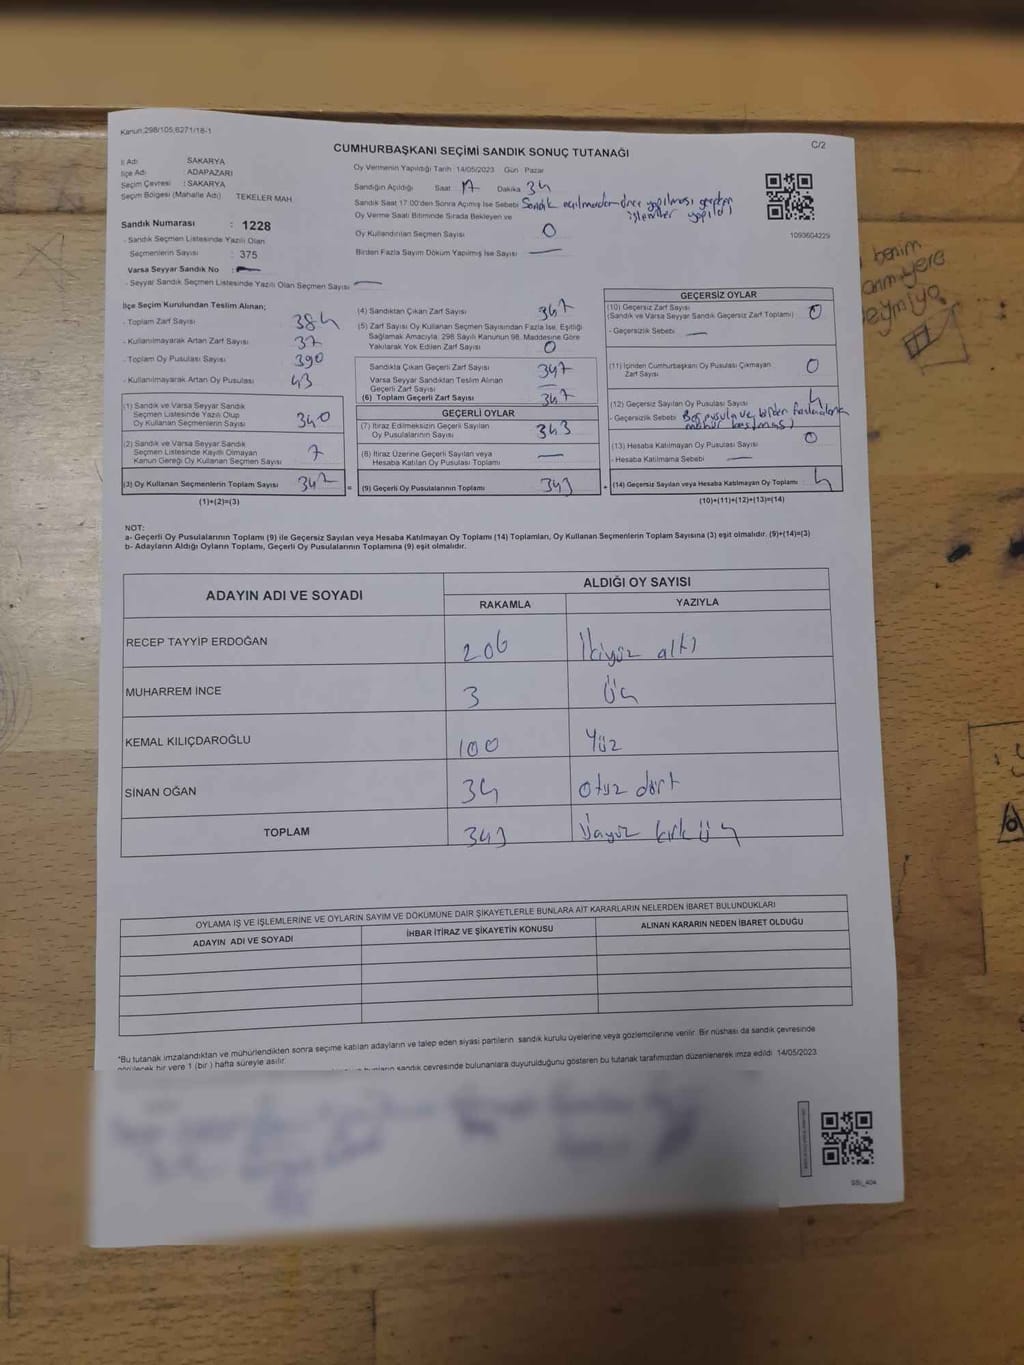 Kanun:298/105,6271/18-1
C/2
CUMHURBAŞKANI SEÇİMİ SANDIK SONUÇ TUTANAĞI
İl Adı : SAKARYA
İlçe Adı : ADAPAZARI
Seçim Çevresi : SAKARYA
Seçim Bölgesi (Mahalle Adı) TEKELER MAH.
Sandık Numarası : 1228
- Sandık Seçmen Listesinde Yazılı Olan
Seçmenlerin Sayısı : 375
Varsa Seyyar Sandık No :
- Seyyar Sandık Seçmen Listesinde Yazılı Olan Seçmen Sayısı :
Oy Vermenin Yapıldığı Tarih :14/05/2023 Gün Pazar
Sandığın Açıldığı Saat 17 Dakika 34
Sandık Saat 17:00'den Sonra Açılmış İse Sebebi Sandık açılmadan önce yapılması gereken
işlemler yapıldı
Oy Verme Saati Bitiminde Sırada Bekleyen ve
Oy Kullandırılan Seçmen Sayısı 0
Birden Fazla Sayım Döküm Yapılmış İse Sayısı —
1093604229
İlçe Seçim Kurulundan Teslim Alınan;
- Toplam Zarf Sayısı 384
- Kullanılmayarak Artan Zarf Sayısı 37
- Toplam Oy Pusulası Sayısı 390
- Kullanılmayarak Artan Oy Pusulası 43
(1) Sandık ve Varsa Seyyar Sandık
Seçmen Listesinde Yazılı Olup
Oy Kullanan Seçmenlerin Sayısı 340
(2) Sandık ve Varsa Seyyar Sandık
Seçmen Listesinde Kayıtlı Olmayan
Kanun Gereği Oy Kullanan Seçmen Sayısı 7
(3) Oy Kullanan Seçmenlerin Toplam Sayısı 347 =
(1)+(2)=(3)
(4) Sandıktan Çıkan Zarf Sayısı 347
(5) Zarf Sayısı Oy Kullanan Seçmen Sayısından Fazla İse, Eşitliği
Sağlamak Amacıyla, 298 Sayılı Kanunun 98. Maddesine Göre
Yakılarak Yok Edilen Zarf Sayısı 0
Sandıkta Çıkan Geçerli Zarf Sayısı 347
Varsa Seyyar Sandıktan Teslim Alınan
Geçerli Zarf Sayısı —
(6) Toplam Geçerli Zarf Sayısı 347
GEÇERLİ OYLAR
(7) İtiraz Edilmeksizin Geçerli Sayılan
Oy Pusulalarının Sayısı 343
(8) İtiraz Üzerine Geçerli Sayılan veya
Hesaba Katılan Oy Pusulası Toplamı —
(9) Geçerli Oy Pusulalarının Toplamı 343 +
GEÇERSİZ OYLAR
(10) Geçersiz Zarf Sayısı
(Sandık ve Varsa Seyyar Sandık Geçersiz Zarf Toplamı) 0
- Geçersizlik Sebebi : —
(11) İçinden Cumhurbaşkanı Oy Pusulası Çıkmayan
Zarf Sayısı 0
(12) Geçersiz Sayılan Oy Pusulası Sayısı 4
- Geçersizlik Sebebi Boş pusula ve birden fazla
mühür basılması
(13) Hesaba Katılmayan Oy Pusulası Sayısı 0
- Hesaba Katılmama Sebebi —
(14) Geçersiz Sayılan veya Hesaba Katılmayan Oy Toplamı 4
(10)+(11)+(12)+(13)=(14)
NOT:
a- Geçerli Oy Pusulalarının Toplamı (9) ile Geçersiz Sayılan veya Hesaba Katılmayan Oy Toplamı (14) Toplamları, Oy Kullanan Seçmenlerin Toplam Sayısına (3) eşit olmalıdır. (9)+(14)=(3)
b- Adayların Aldığı Oyların Toplamı, Geçerli Oy Pusulalarının Toplamına (9) eşit olmalıdır.
ADAYIN ADI VE SOYADI
ALDIĞI OY SAYISI
RAKAMLA YAZIYLA
RECEP TAYYİP ERDOĞAN 206 İkiyüz altı
MUHARREM İNCE 3 Üç
KEMAL KILIÇDAROĞLU 100 Yüz
SİNAN OĞAN 34 Otuz dört
TOPLAM 343 Üçyüz kırk üç
OYLAMA İŞ VE İŞLEMLERİNE VE OYLARIN SAYIM VE DÖKÜMÜNE DAİR ŞİKAYETLERLE BUNLARA AİT KARARLARIN NELERDEN İBARET BULUNDUKLARI
ADAYIN ADI VE SOYADI İHBAR İTİRAZ VE ŞİKAYETİN KONUSU ALINAN KARARIN NEDEN İBARET OLDUĞU
"Bu tutanak imzalandıktan ve mühürlendikten sonra seçime katılan adayların ve talep eden siyasi partilerin sandık kurulu üyelerine veya gözlemcilerine verilir. Bir nüshası da sandık çevresinde
görülecek bir yere 1 (bir) hafta süreyle asılır.
sandık çevresinde bulunanlara duyurulduğunu gösteren bu tutanak tarafımızdan düzenlenerek imza edildi. 14/05/2023
benim